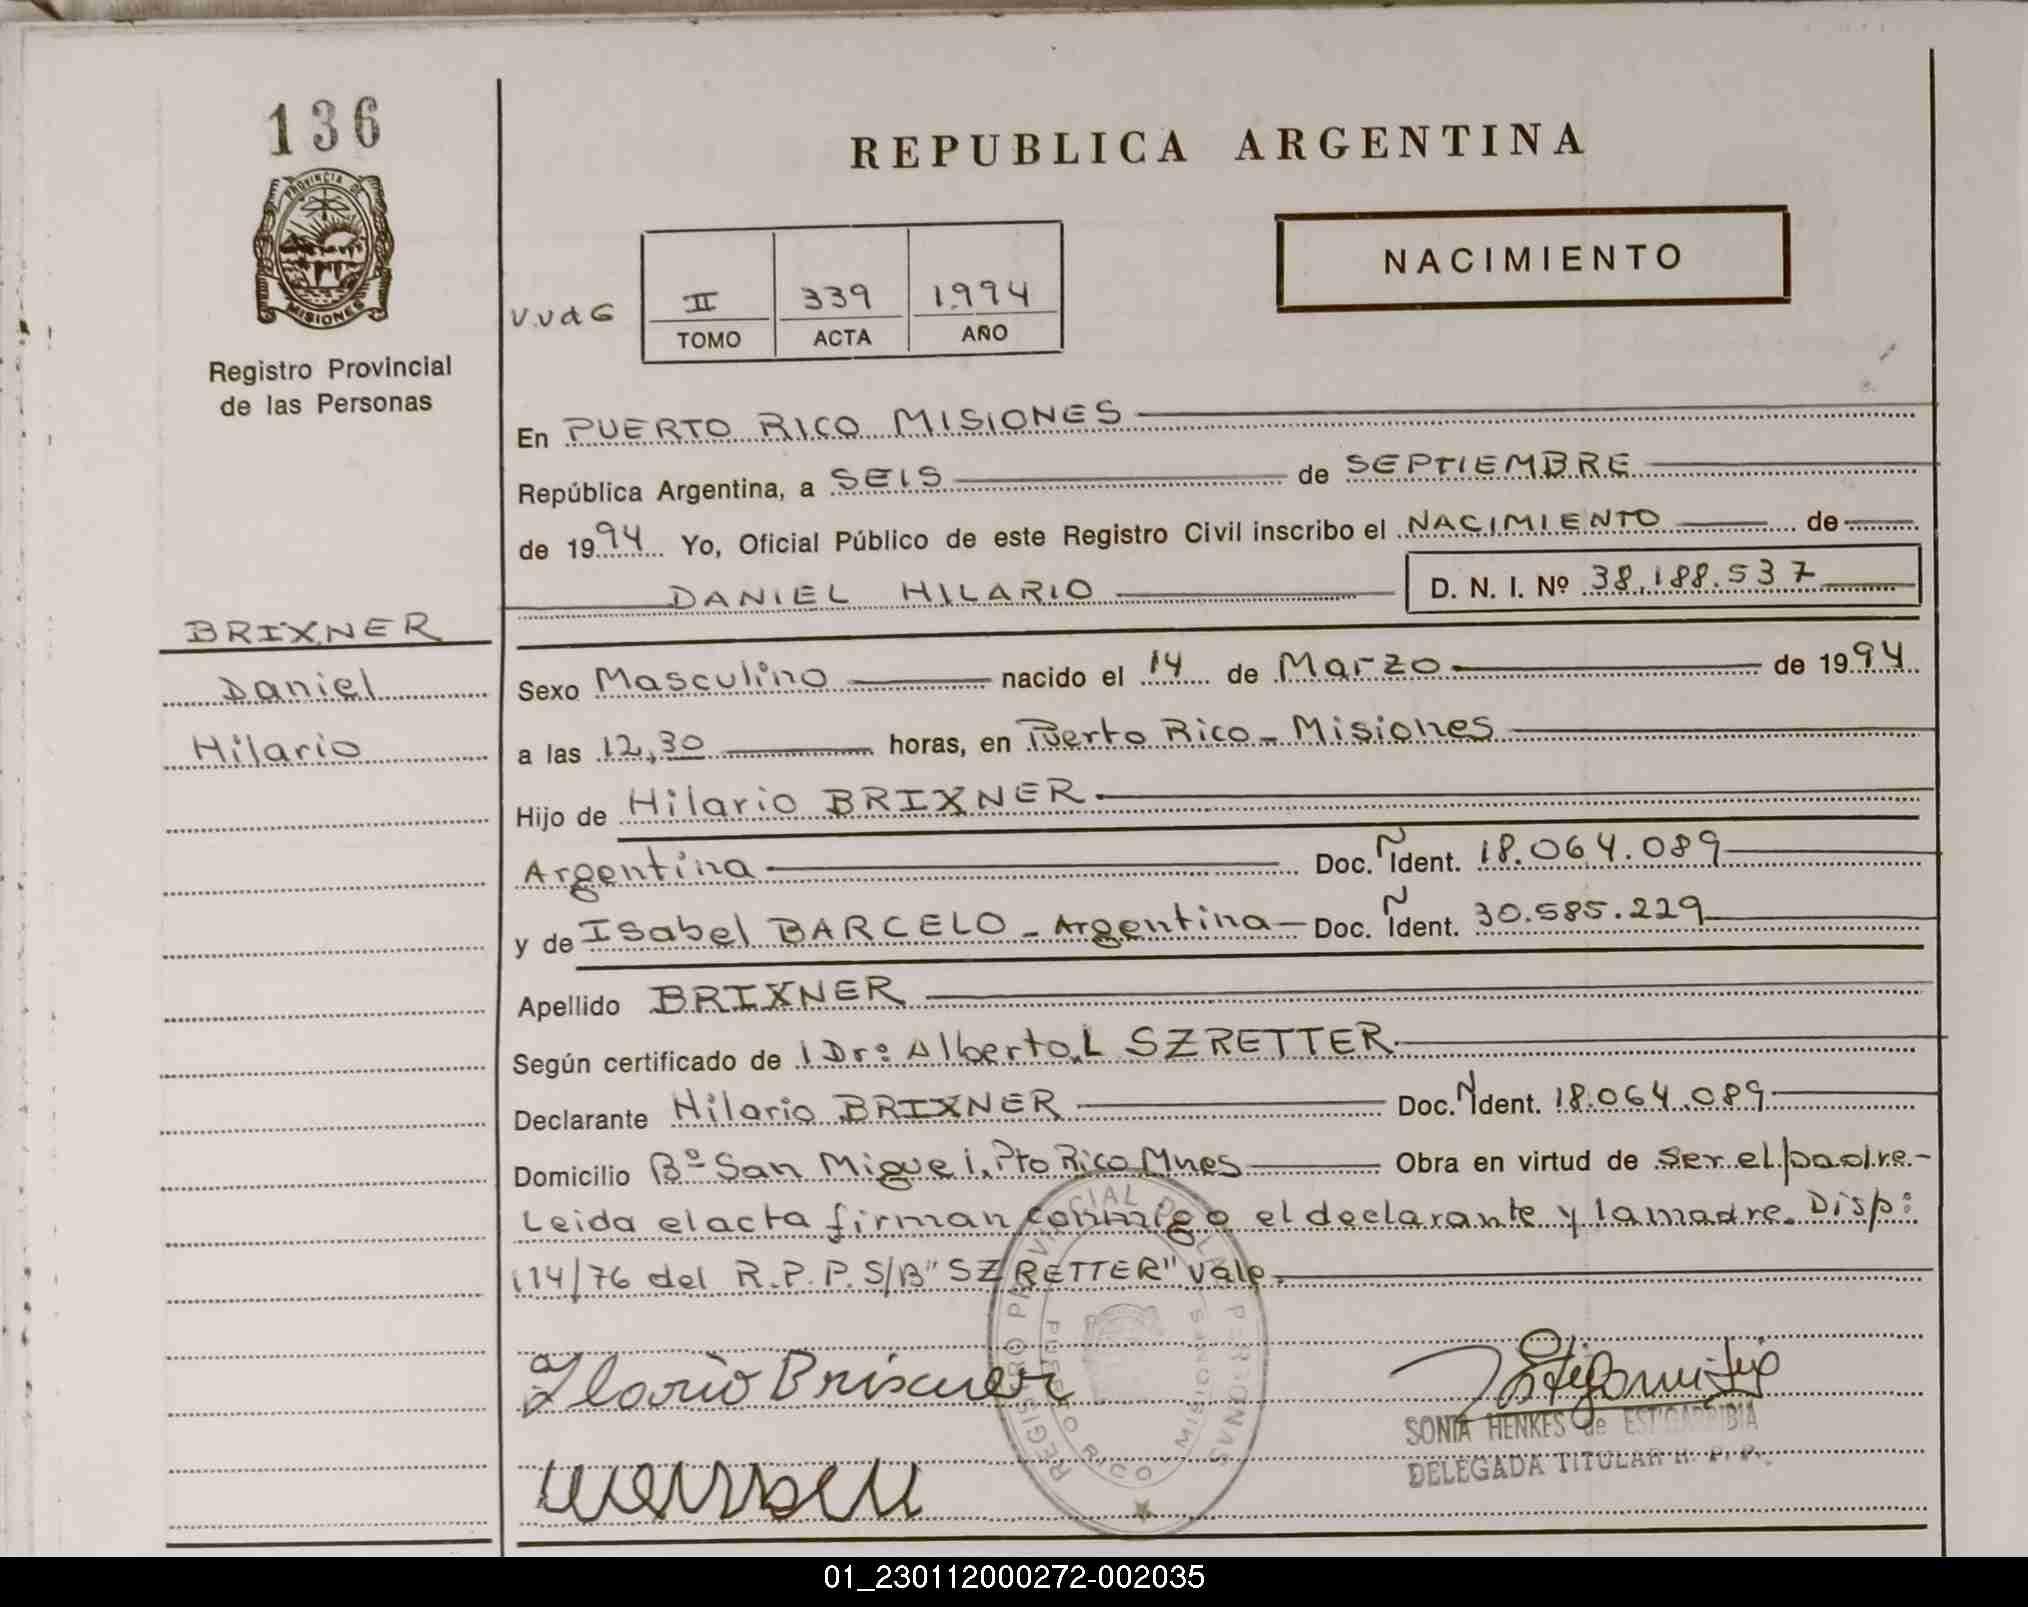 136
PROVINCIA DE
MISIONES
Registro Provincial
de las Personas
BRIXNER
Daniel
Hilario
REPUBLICA ARGENTINA
NACIMIENTO
V.V d G
II 339 1994
TOMO ACTA AÑO
En PUERTO RICO MISIONES
República Argentina, a SEIS de SEPTIEMBRE
de 1994 Yo, Oficial Público de este Registro Civil inscribo el NACIMIENTO de
DANIEL HILARIO D. N. I. Nº 38.188.537
Sexo Masculino nacido el 14 de Marzo de 1994
a las 12,30 horas, en Puerto Rico - Misiones
Hijo de Hilario BRIXNER
Argentina Doc. Ñ Ident. 18.064.089
y de Isabel BARCELO - Argentina - Doc. Ñ Ident. 30.585.229
Apellido BRIXNER
Según certificado de l Dr: Alberto L SZRETTER
Declarante Hilario BRIXNER Doc. Ñ Ident. 18.064.089
Domicilio Bº San Miguel, Pto Rico Mnes Obra en virtud de ser el padre.-
Leida el acta firman conmigo el declarante y la madre. Disp:
114/76 del R.P.P. S/B "SZRETTER" Vale.
REGISTRO PROVINCIAL DE LAS PERSONAS
PUERTO RICO - MISIONES
Ilario Brixner
SONIA HENKES de ESTIGARRIBIA
DELEGADA TITULAR R. P. P.
01_230112000272-002035